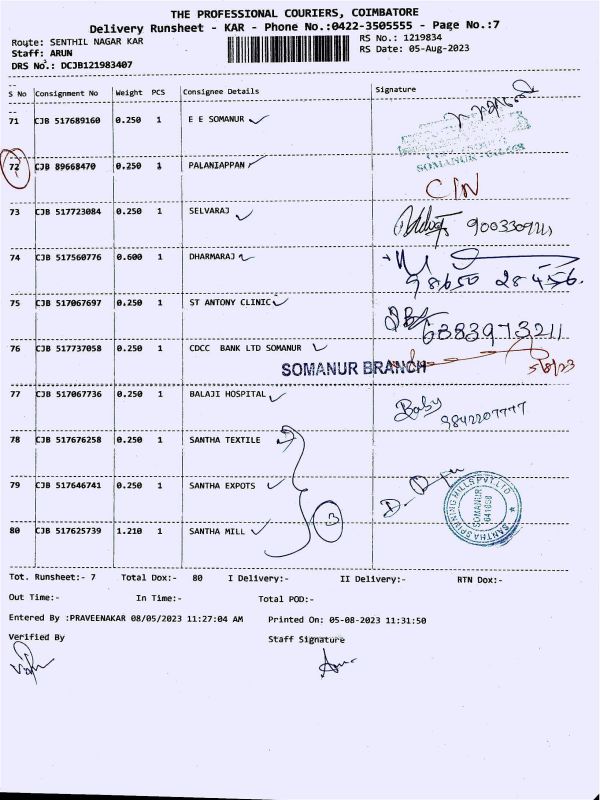 THE PROFESSIONAL COURIERS, COIMBATORE
Delivery Runsheet - KAR - Phone No.:0422-3505555 - Page No.:7
Route: SENTHIL NAGAR KAR
RS No.: 1219834
Staff: ARUN
RS Date: 05-Aug-2023
DRS No.: DCJB121983407
S No Consignment No Weight PCS Consignee Details Signature
71 CJB 517689160 0.250 1 E E SOMANUR
SOMANUR
72 CJB 89668470 0.250 1 PALANIAPPAN
C/N
73 CJB 517723084 0.250 1 SELVARAJ
74 CJB 517560776 0.600 1 DHARMARAJ
98650 28456.
75 CJB 517067697 0.250 1 ST ANTONY CLINIC
6383973211
76 CJB 517737058 0.250 1 CDCC BANK LTD SOMANUR
SOMANUR BRANCH
5/8/23
77 CJB 517067736 0.250 1 BALAJI HOSPITAL Baby
9842207777
78 CJB 517676258 0.250 1 SANTHA TEXTILE
79 CJB 517646741 0.250 1 SANTHA EXPOTS
80 CJB 517625739 1.210 1 SANTHA MILL
3
SANTHA SPINNING MILLS PVT LTD
SOMANUR
641668
Tot. Runsheet:- 7 Total Dox:- 80 I Delivery:- II Delivery:- RTN Dox:-
Out Time:- In Time:- Total POD:-
Entered By :PRAVEENAKAR 08/05/2023 11:27:04 AM Printed On: 05-08-2023 11:31:50
Verified By Staff Signature